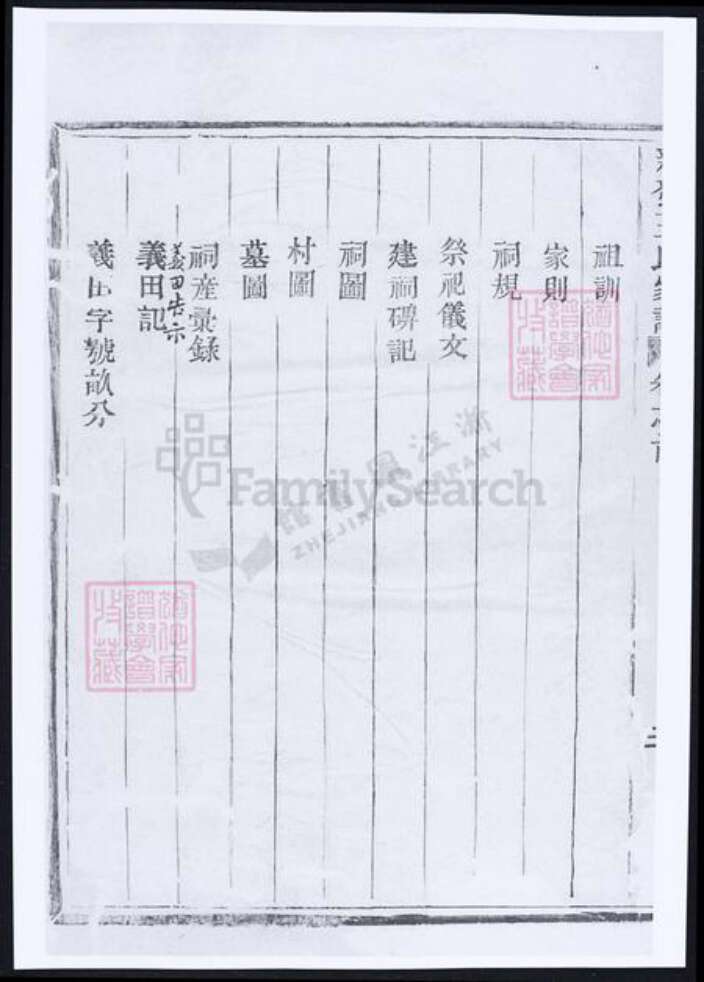 祖訓
家則
祠規
祭祀儀文
建祠碑記
祠圖
村圖
墓圖
祠產彙錄
義田告示
義田記
義田字號畝分
二
FamilySearch
浙江圖書館
ZHEJIANG LIBRARY
譜學會
收藏
譜學會
收藏